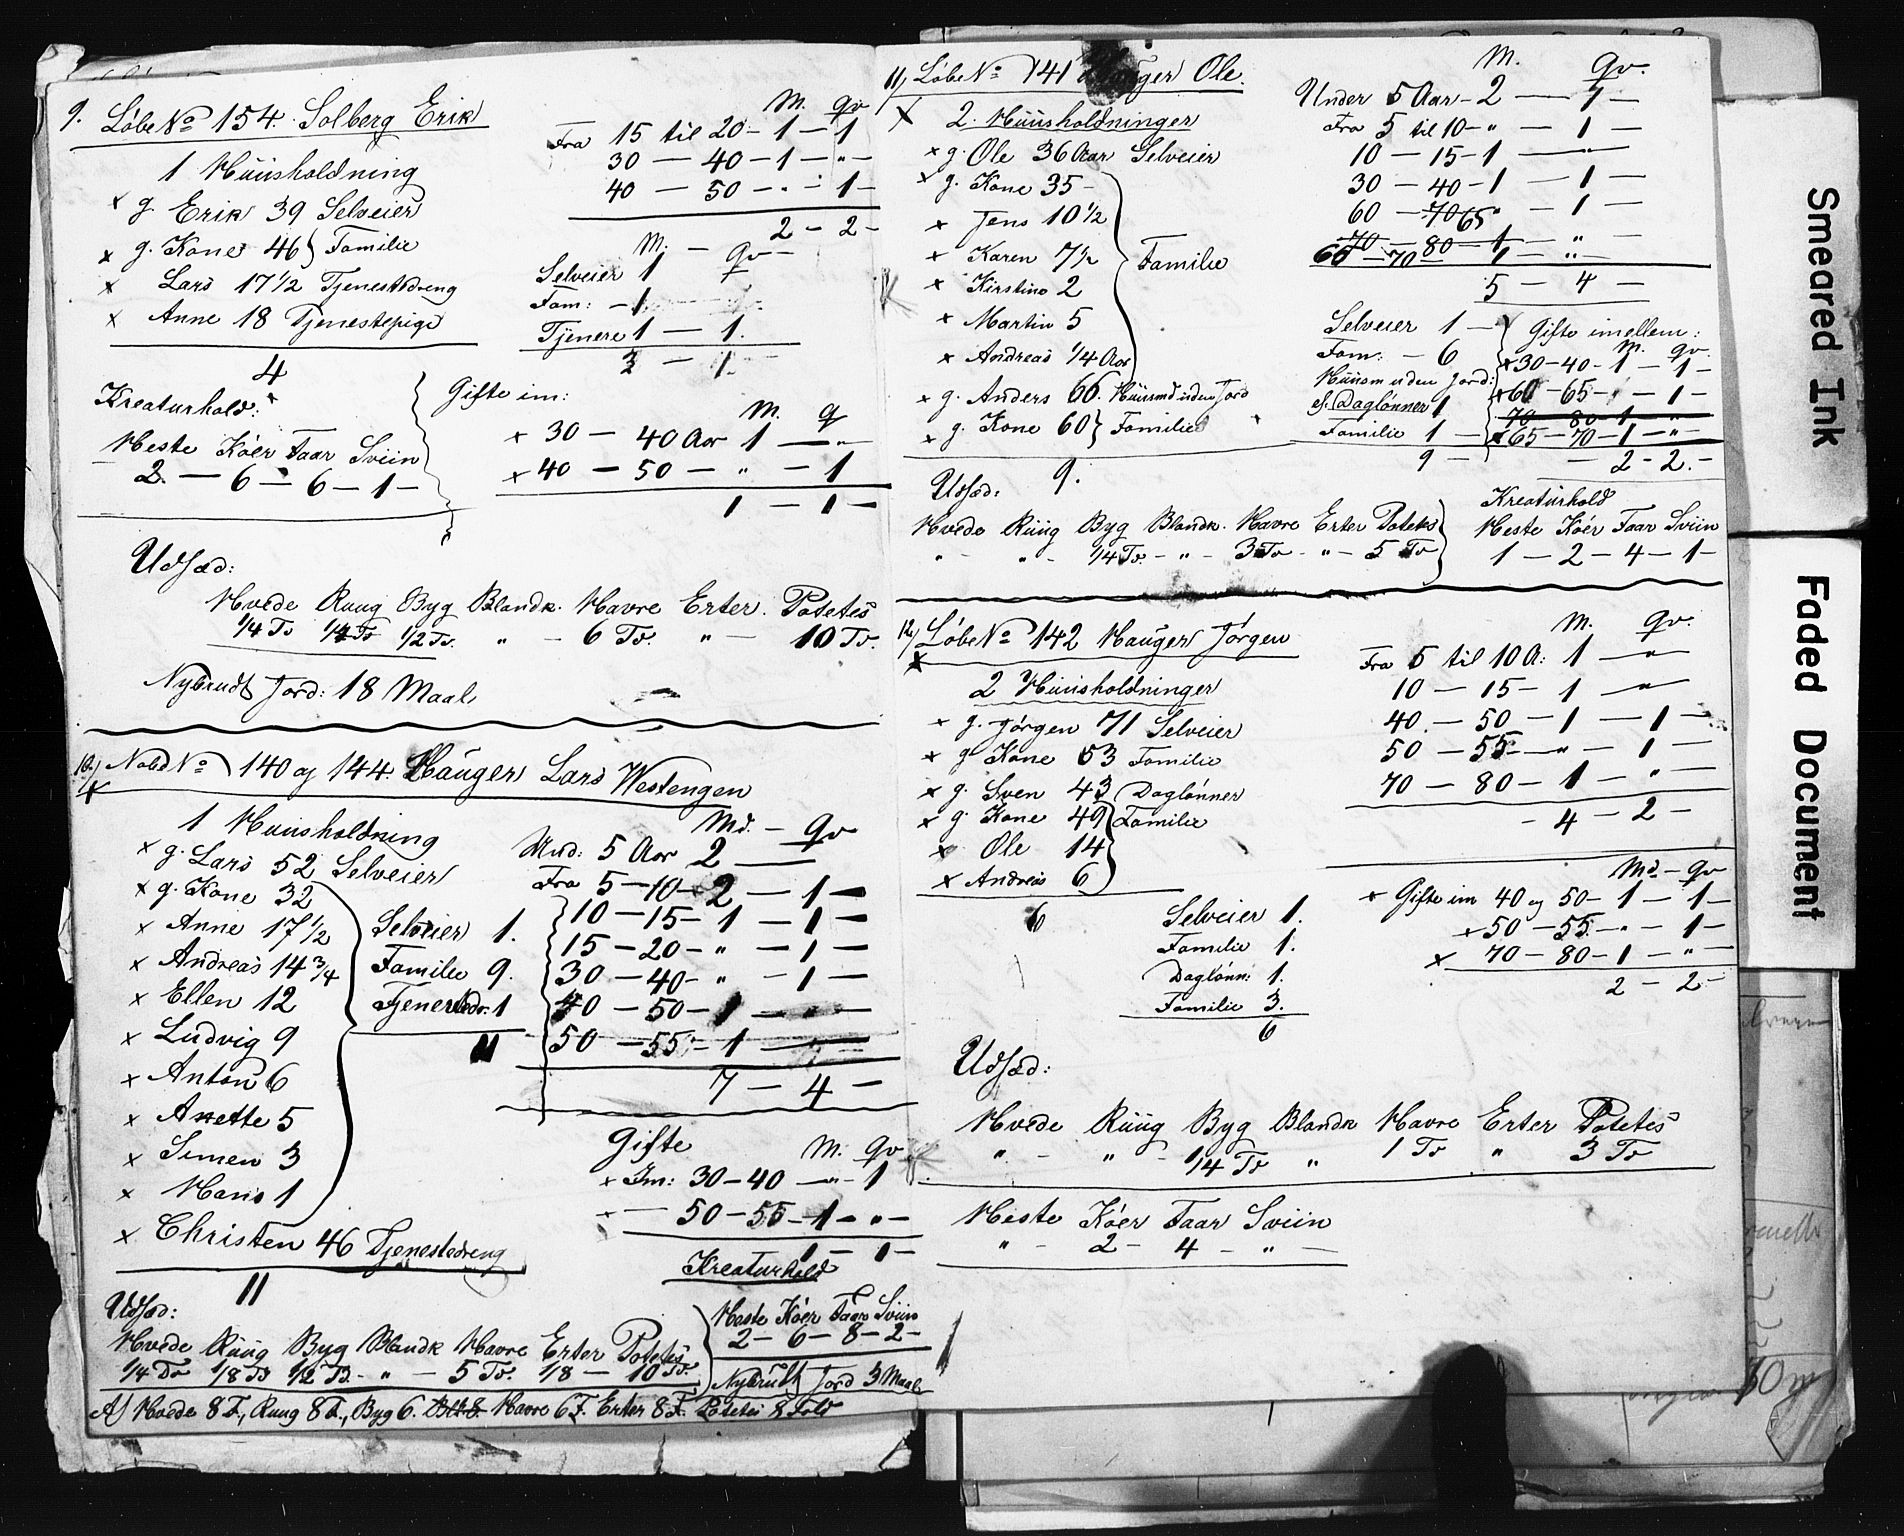 9. Løbe No 154. Solberg Erik
1 Huusholdning
x g. Erik 39 Selveier
x g. Kone 46 } Familie
x Lars 17 1/2 Tjenestedreng
x Anne 18 Tjenestepige
4
M. Qv
Fra 15 til 20 - 1 - 1
30 - 40 - 1 - " -
40 - 50 - " - 1 -
2 - 2 -
M. - Qv -
Selveier 1
Fam: - 1
Tjenere 1 - 1.
3 - 1
Kreaturhold:
Heste Køer Faar Sviin
2 - 6 - 6 - 1 -
Gifte im:
M. Q
x 30 - 40 Aar 1 - "
x 40 - 50 - " - 1
1 - 1 -
Udsæd:
Hvede Ruug Byg Blandk. Havre Erter. Potetes
1/4 Tø 1/4 Tø 1/2 Tø. " - 6 Tø. " - 10 Tø.
Nybrudt Jord: 18 Maal
10.) No 140 og 144 Hauger Lars Westengen
x
1 Huusholdning
x g. Lars 52 Selveier
x g. Kone 32
x Anne 17 1/2
x Andreas 14 3/4
x Ellen 12
x Ludvig 9
x Anton 6
x Anette 5
x Simen 3
x Hans 1
x Christen 46 Tjenestedreng
11
Selveier 1.
Familie 9.
1
11
Md. - Qv
Und: 5 Aar 2 -
Fra 5 - 10 - 2 - 1 -
10 - 15 - 1 - 1 -
15 - 20 - " - 1 -
30 - 40 - " - 1 -
40 - 50 - 1 - " -
50 - 55 - 1 -
7 - 4 -
Gifte M. Qv.
x Im: 30 - 40 - " - 1
x - 50 - 55 - 1 - " -
1 - 1 -
Kreaturhold
Heste Køer Faar Sviin
2 - 6 - 8 - 2 -
Nybrudt Jord 3 Maal
Udsæd:
Hvede Ruug Byg Blandk Havre Erter Potetes
1/4 Tø 1/8 Tø 1/2 Tø. - " - 5 Tø. 1/8 - 10 Tø.
A) Hvede 8 F., Ruug 8 F., Byg 6. Blk 8. Havre 6 F. Erter 8 F. Potetes 8 Fold
11) Løbe No 141 Hauger Ole.
x 2. Huusholdninger
x g. Ole 36 Aar Selveier
x g. Kone 35 -
x Jens 10 1/2
x Karen 7 1/2
x Kirstine 2
x Martin 5
x Andreas 1/4 Aar
Familie
x g. Anders 66. Huusmd uden Jord
x g. Kone 60 } Familie
9.
M. Qv.
Under 5 Aar - 2 - 1 -
Fra 5 til 10 - " - 1 -
10 - 15 - 1 - " -
30 - 40 - 1 - 1 -
60 - 70 65 " - 1 -
70 - 80 - 1 - " -
65 - 70 - 1 - " -
5 - 4 -
Selveier 1 -
Fam: - 6
Huusm uden Jord:
Daglønner 1
Familie 1 -
9 -
Gifte imellem:
M. Qv.
x 30 - 40 - 1 - 1 -
x 60 - 65 - " - 1 -
70 - 80 - 1 - "
x 65 - 70 - 1 - " -
- 2 - 2. -
Udsæd:
Hvede Ruug Byg Blandk. Havre Erter Potetes
" - " - 1/4 Tø. - " - 3 Tø - " - 5 Tø
Kreaturhold
Heste Køer Faar Sviin
1 - 2 - 4 - 1 -
12.) Løbe No 142 Hauger Jørgen
x
2 Huusholdninger
x g. Jørgen 71 Selveier
x g. Kone 53 Familie
x g. Sven 43 Daglønner
x g. Kone 49
x Ole 14
x Andreas 6
Familie
6
M. Qv.
Fra 5 til 10 A: 1 - "
10 - 15 - 1 - "
40 - 50 - 1 - 1 -
50 - 55 - " - 1 -
70 - 80 - 1 - " -
- 4 - 2 -
Md - Qv
x Gifte im 40 og 50 - 1 - 1 -
x 50 - 55 - " - 1 -
x 70 - 80 - 1 - " -
2 - 2 -
Selveier 1.
Familie 1.
Daglønn: 1.
Familie 3.
6
Udsæd:
Hvede Ruug Byg Blandk Havre Erter Potetes
" - " - 1/4 Tø " 1 Tø " 3 Tø
Heste Køer Faar Sviin
" - 2 - 4 - " -
Smeared Ink
Faded Document